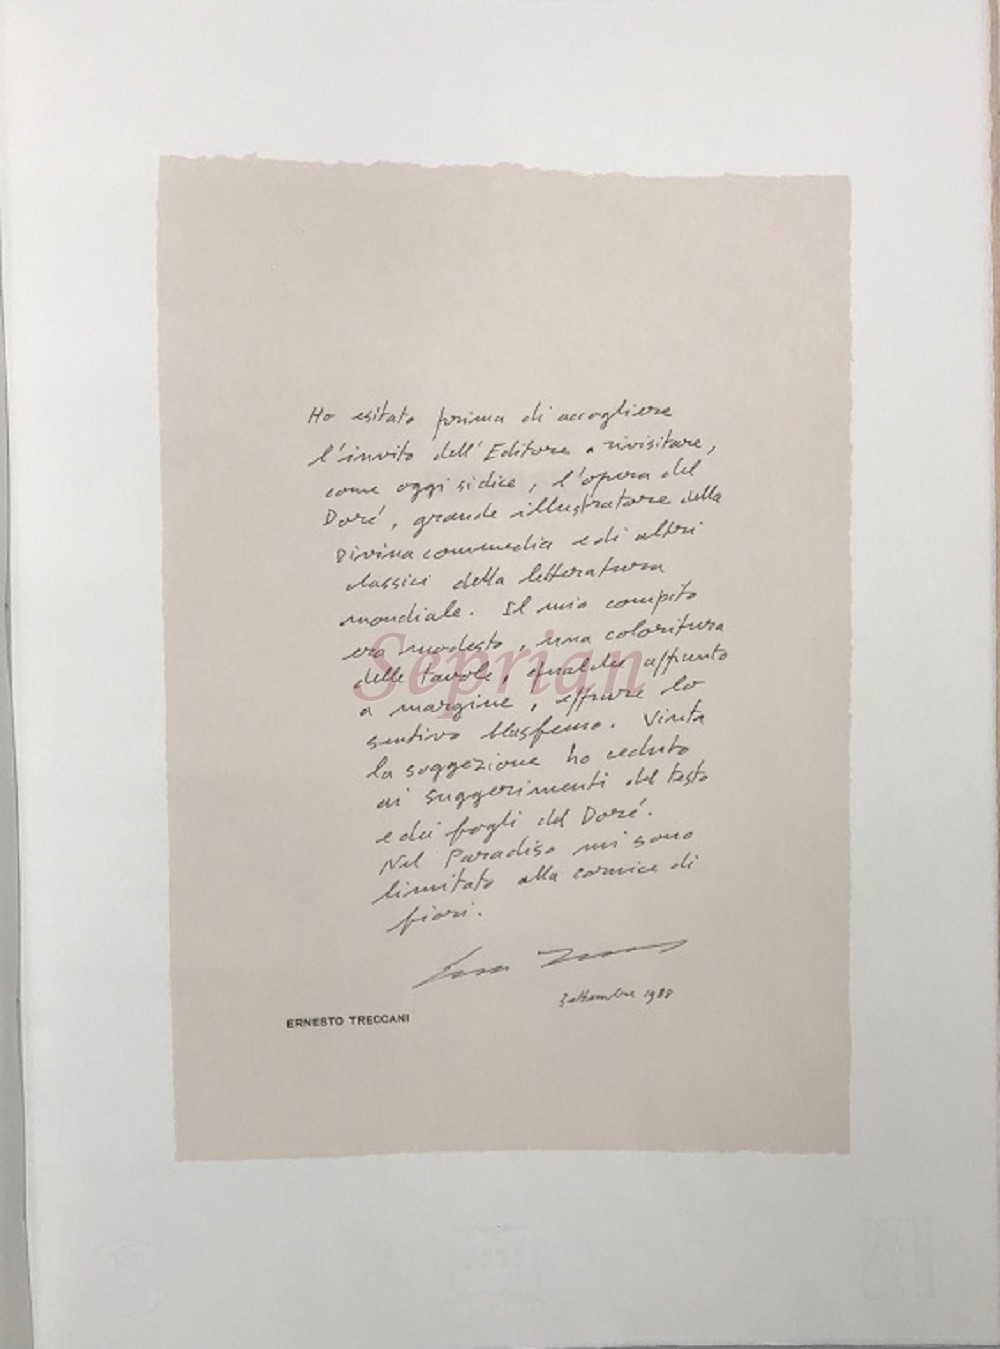 Ho esitato prima di accogliere
l'invito dell'Editore a rivisitare,
come oggi si dice, l'opera del
Doré, grande illustratore della
Divina commedia e di altri
classici della letteratura
mondiale. Il mio compito
era modesto, una coloritura
delle tavole, qualche appunto
a margine, eppure lo
sentivo blasfemo. Vinta
la soggezione ho ceduto
ai suggerimenti del testo
e dei fogli del Doré.
Nel Paradiso mi sono
limitato alla cornice di
fiori.
settembre 1988
ERNESTO TRECCANI
Seprian